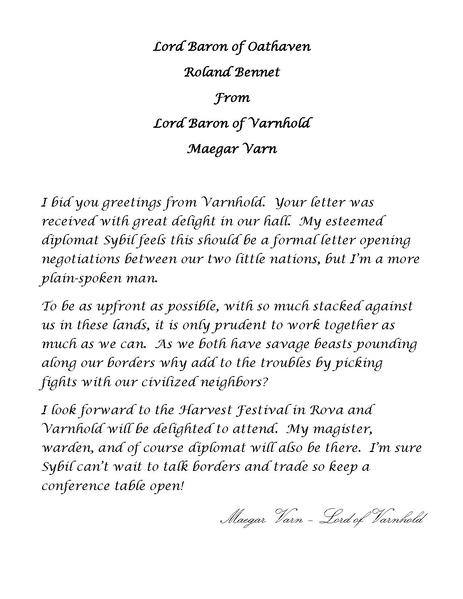 Lord Baron of Oathaven
Roland Bennet
From
Lord Baron of Varnhold
Maegar Varn
I bid you greetings from Varnhold. Your letter was
received with great delight in our hall. My esteemed
diplomat Sybil feels this should be a formal letter opening
negotiations between our two little nations, but I'm a more
plain-spoken man.
To be as upfront as possible, with so much stacked against
us in these lands, it is only prudent to work together as
much as we can. As we both have savage beasts pounding
along our borders why add to the troubles by picking
fights with our civilized neighbors?
I look forward to the Harvest Festival in Rova and
Varnhold will be delighted to attend. My magister,
warden, and of course diplomat will also be there. I'm sure
Sybil can't wait to talk borders and trade so keep a
conference table open!
Maegar Varn – Lord of Varnhold